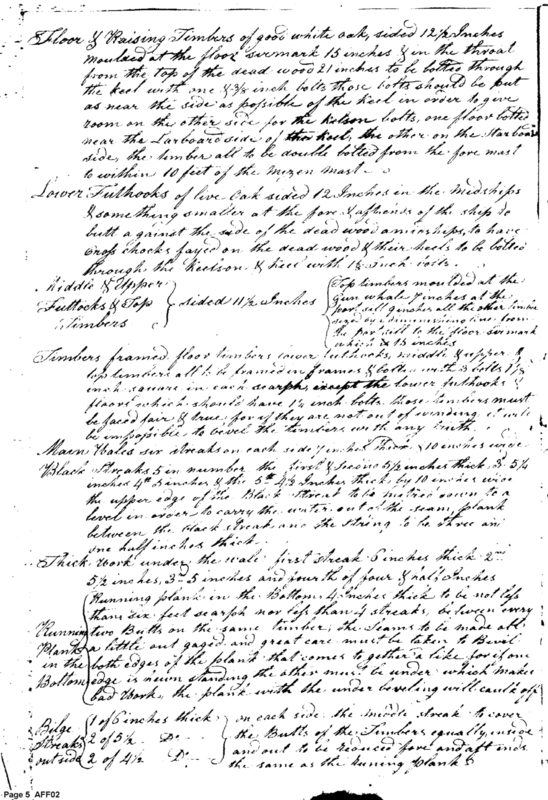 Floor & Raising Timbers of good white oak, sided 12 1/2 Inches
moulded at the floor sirmark 15 inches & in the throat
from the top of the dead wood 21 inches to be bolted through
the keel with one & 3/8 inch bolts those bolts should be put
as near the side as possible of the keel in order to give
room on the other side for the kelson bolts, one floor bolted
near the Larboard side of the keel, the other on the Starboard
side, the timber all to be double bolted from the fore mast
to within 10 feet of the mizen mast.
Lower Futhooks of live Oak sided 12 Inches in the midships
& something smaller at the fore & aft ends of the ship to
butt against the side of the dead wood amidships, to have
Crop chocks fayed on the dead wood & their heels to be bolted
through the Keelson & keel with Inch bolts.
Middle & Upper
Futtocks & Top
Timbers
sided 11 1/2 Inches
Top timbers moulded at the
Gun whale 7 inches at the
port sill 9 inches all the other timber
sized by a diminishing line from
the port sill to the floor sirmark
which is 15 inches
Timbers framed floor timbers lower futhooks, middle & upper &
top timbers all to be framed in frames & bolted with 3 bolts
inch square in each scarph, except the lower futhooks &
floors which should have 1 1/4 inch bolts, those timbers must
be faced fair & true, for if they are not out of winding it will
be impossible to bevel the timbers with any truth.
Main Wales six streaks on each side 7 inches thick & 10 inches wide
Black Streaks 5 in number the first & second 5 1/2 inches thick, 3d 5 1/4
inches 4th 5 inches & the 5th 4 1/2 Inches thick by 10 inches wide
the upper edge of the Black Streak to be down to a
level in order to carry the water out of the seam, plank
between the black streak and the string to be three and
one half inches thick.
Thick Work under the wale first streak 6 inches thick 2nd
5 1/2 inches, 3rd 5 inches and fourth of four & half Inches
Running
Planks
in the
Bottom
Running plank in the Bottom 4 Inches thick to be not less
than six feet scarph nor less than 4 streaks, between every
two Butts on the same timber, the Seams to be made all
a little out gaged and great care must be taken to Bevil
both edges of the plank that comes to gether a like for if one
edge is hewn standing the other must be under which makes
bad Work, the plank with the under beveling will caulk off
Bilge
Streaks
outside
1 of 6 inches thick
2 of 5 1/2 Do
2 of 4 1/2 Do
on each side the middle streak to cover
the Butts of the Timbers equally, inside
and out to be reduced fore and aft ends
the same as the Runing plank
Page 5 AFF02